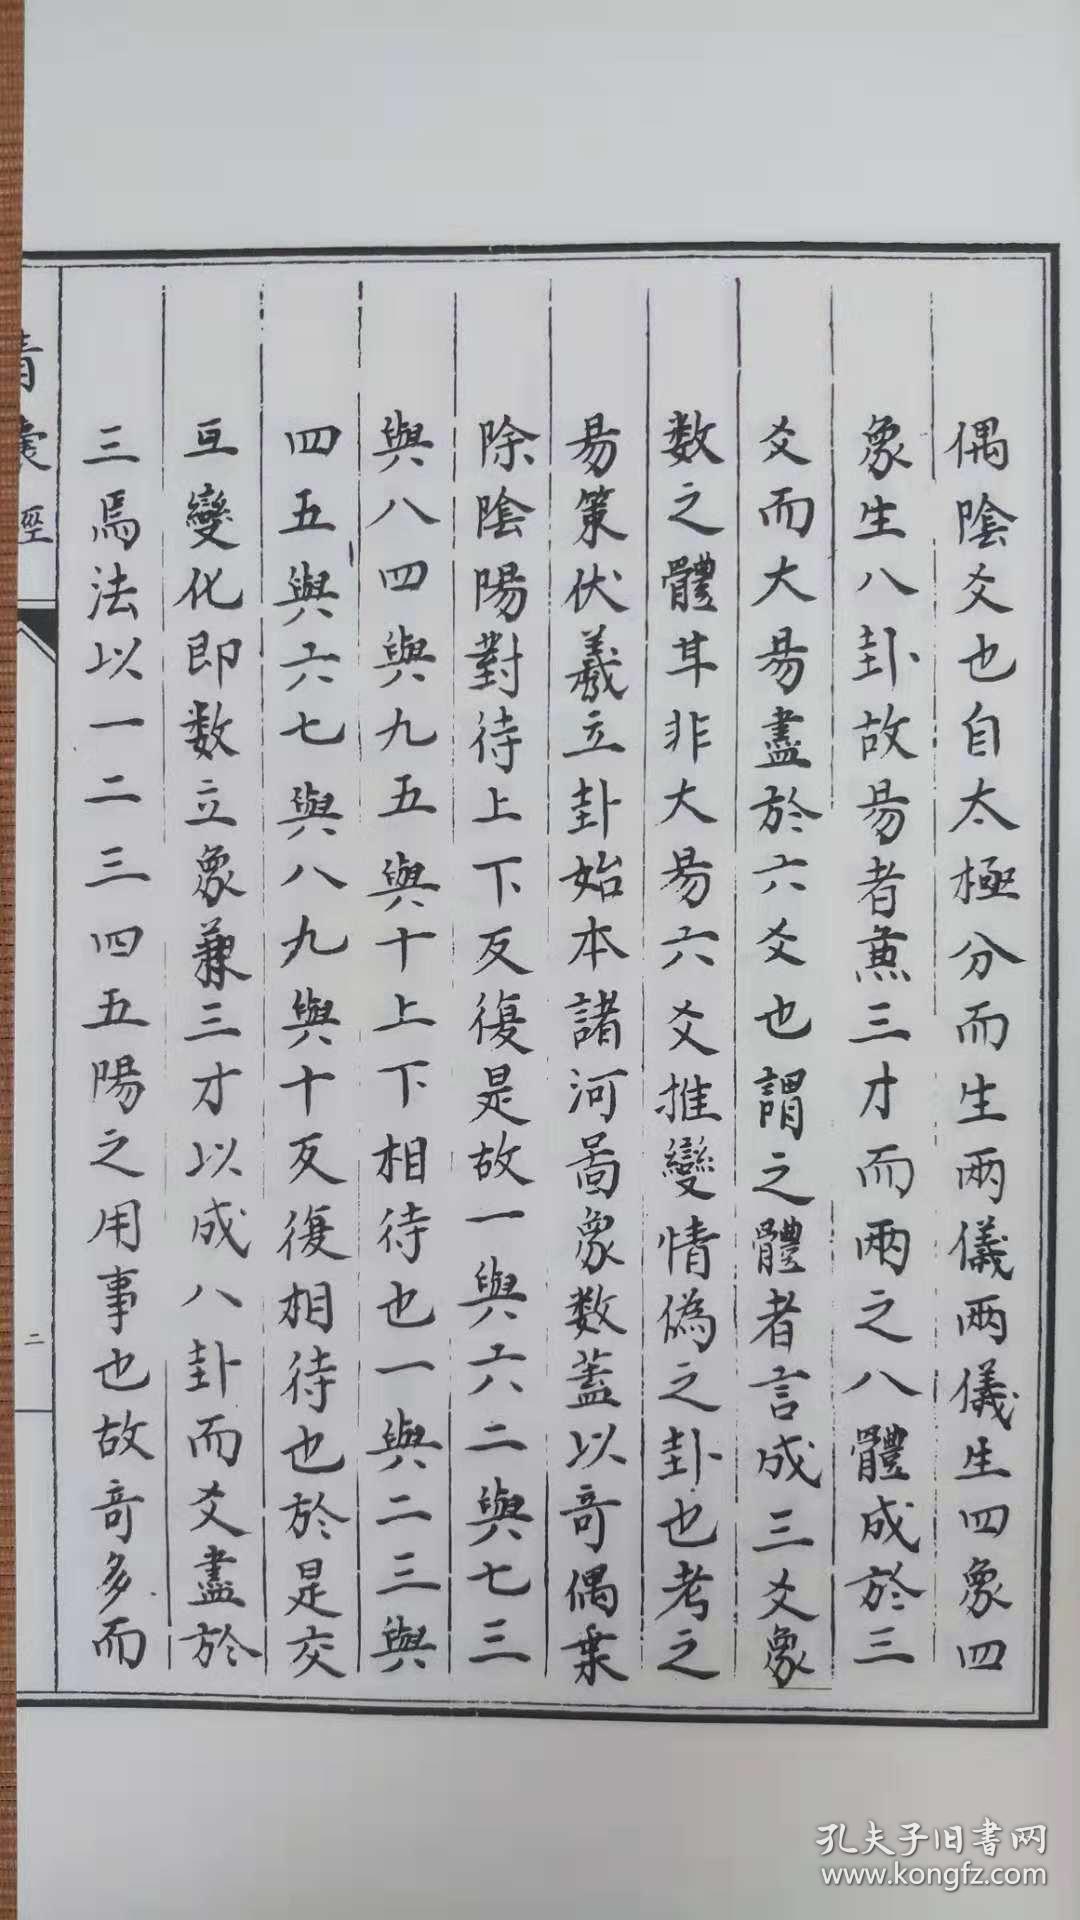 偶陰爻也自太極分而生兩儀兩儀生四象四
象生八卦故易者兼三才而兩之八體成於三
爻而大易盡於六爻也謂之體者言成三爻象
数之體耳非大易六爻推變情偽之卦也考之
易策伏羲立卦始本諸河啚象数蓋以奇偶棄
除陰陽對待上下反復是故一與六二與七三
與八四與九五與十上下相待也一與二三與
四五與六七與八九與十反復相待也於是交
互變化即数立象兼三才以成八卦而爻盡於
三焉法以一二三四五陽之用事也故奇多而
青囊經
二
孔夫子旧書网
www.kongfz.com